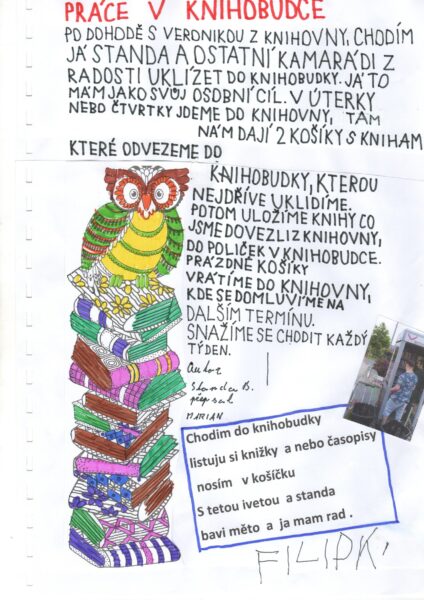 PRÁCE V KNIHOBUDCE
PO DOHODĚ S VERONIKOU Z KNIHOVNY, CHODÍM
JÁ STANDA A OSTATNÍ KAMARÁDI Z
RADOSTI UKLÍZET DO KNIHOBUDKY. JÁ TO
MÁM JAKO SVŮJ OSOBNÍ CÍL. V ÚTERKY
NEBO ČTVRTKY JDEME DO KNIHOVNY, TAM
NÁM DAJÍ 2 KOŠÍKY S KNIHAM
KTERÉ ODVEZEME DO
KNIHOBUDKY, KTEROU
NEJDŘÍVE UKLIDÍME.
POTOM ULOŽÍME KNIHY CO
JSME DOVEZLI Z KNIHOVNY,
DO POLIČEK V KNIHOBUDCE.
PRÁZDNÉ KOŠÍKY
VRÁTÍME DO KNIHOVNY,
KDE SE DOMLUVÍME NA
DALŠÍM TERMÍNU.
SNAŽÍME SE CHODIT KAŽDÝ
TÝDEN.
Autor
Standa B.
přepsal
MARIAN
Chodim do knihobudky
listuju si knižky a nebo časopisy
nosím v košíčku
S tetou ivetou a standa
bavi měto a ja mam rad .
FILIPK